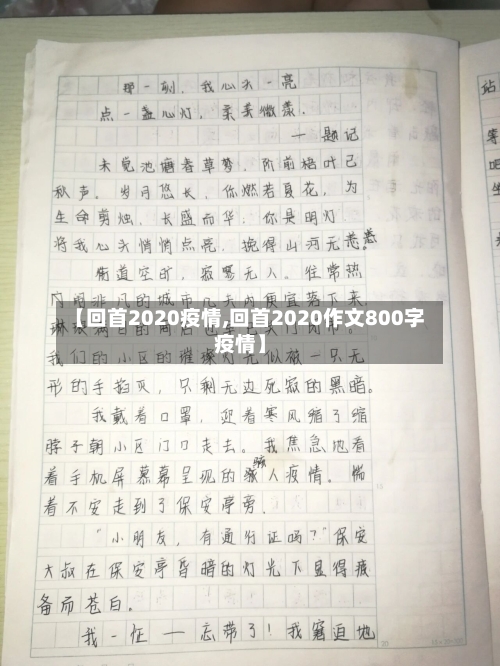 那一刻,我心头一亮
点一盏心灯,柔美微漾.
— 题记
未觉池塘春草梦,阶前梧叶已
秋声。岁月悠长,你燃若夏花,为
生命剪烛,长盛而华,你是明灯
将我心头悄悄点亮,挽得山河无恙
街道空旷,寂寥无人。往常热
闹非凡的城市几天内便宜落下来.
【回首2020疫情,回首2020作文800字
疫情】
我们的小区的璀璨灯光似被一只无
形的手掐灭,只剩无边死寂的黑暗。
我戴着口罩,迎着寒风缩了缩
脖子朝小区门口走去。我焦急地看
着手机屏幕幕呈现的骇人疫情。惴
着不安走到了保安亭旁.
"小朋友,有通行证吗?"保安
大叔在保安亭昏暗的灯光下显得疲
备而苍白。
我一怔 — 忘带了!我窘迫地
站
等